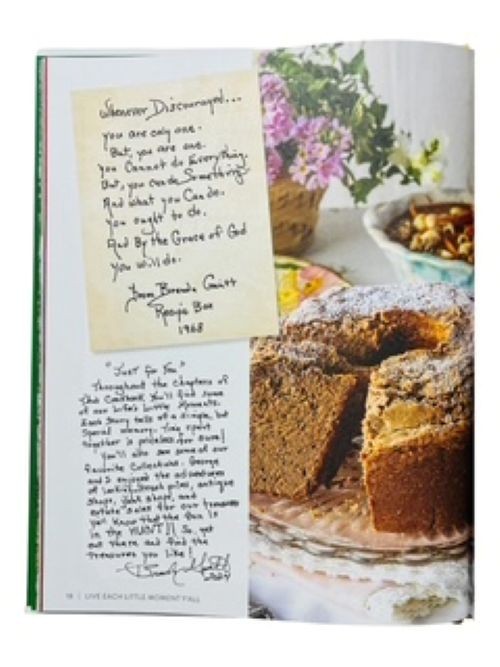 Whenever Discouraged...
you are only one.
But, you are one.
You Cannot do Everything.
But, you can do Something
And what you Can do.
You ought to do.
And By the Grace of God
you will do.
from Brenda Gantt
Recipe Box
1968
"Just for You"
Throughout the chapters of
this Cookbook, You'll find some
of our Life's Little Moments.
Each Story tells of a simple, but
Special memory. Time spent
together is priceless for sure!
You'll also see some of our
favorite Collections. George
and I enjoyed the adventures
of junk shops, antique
shops, and
estate sales for our treasures
you know that the fun is
in the HUNT!! So, get
out there and find the
treasures you like!
Brenda Gantt
2024
18 | LIVE EACH LITTLE MOMENT Y'ALL